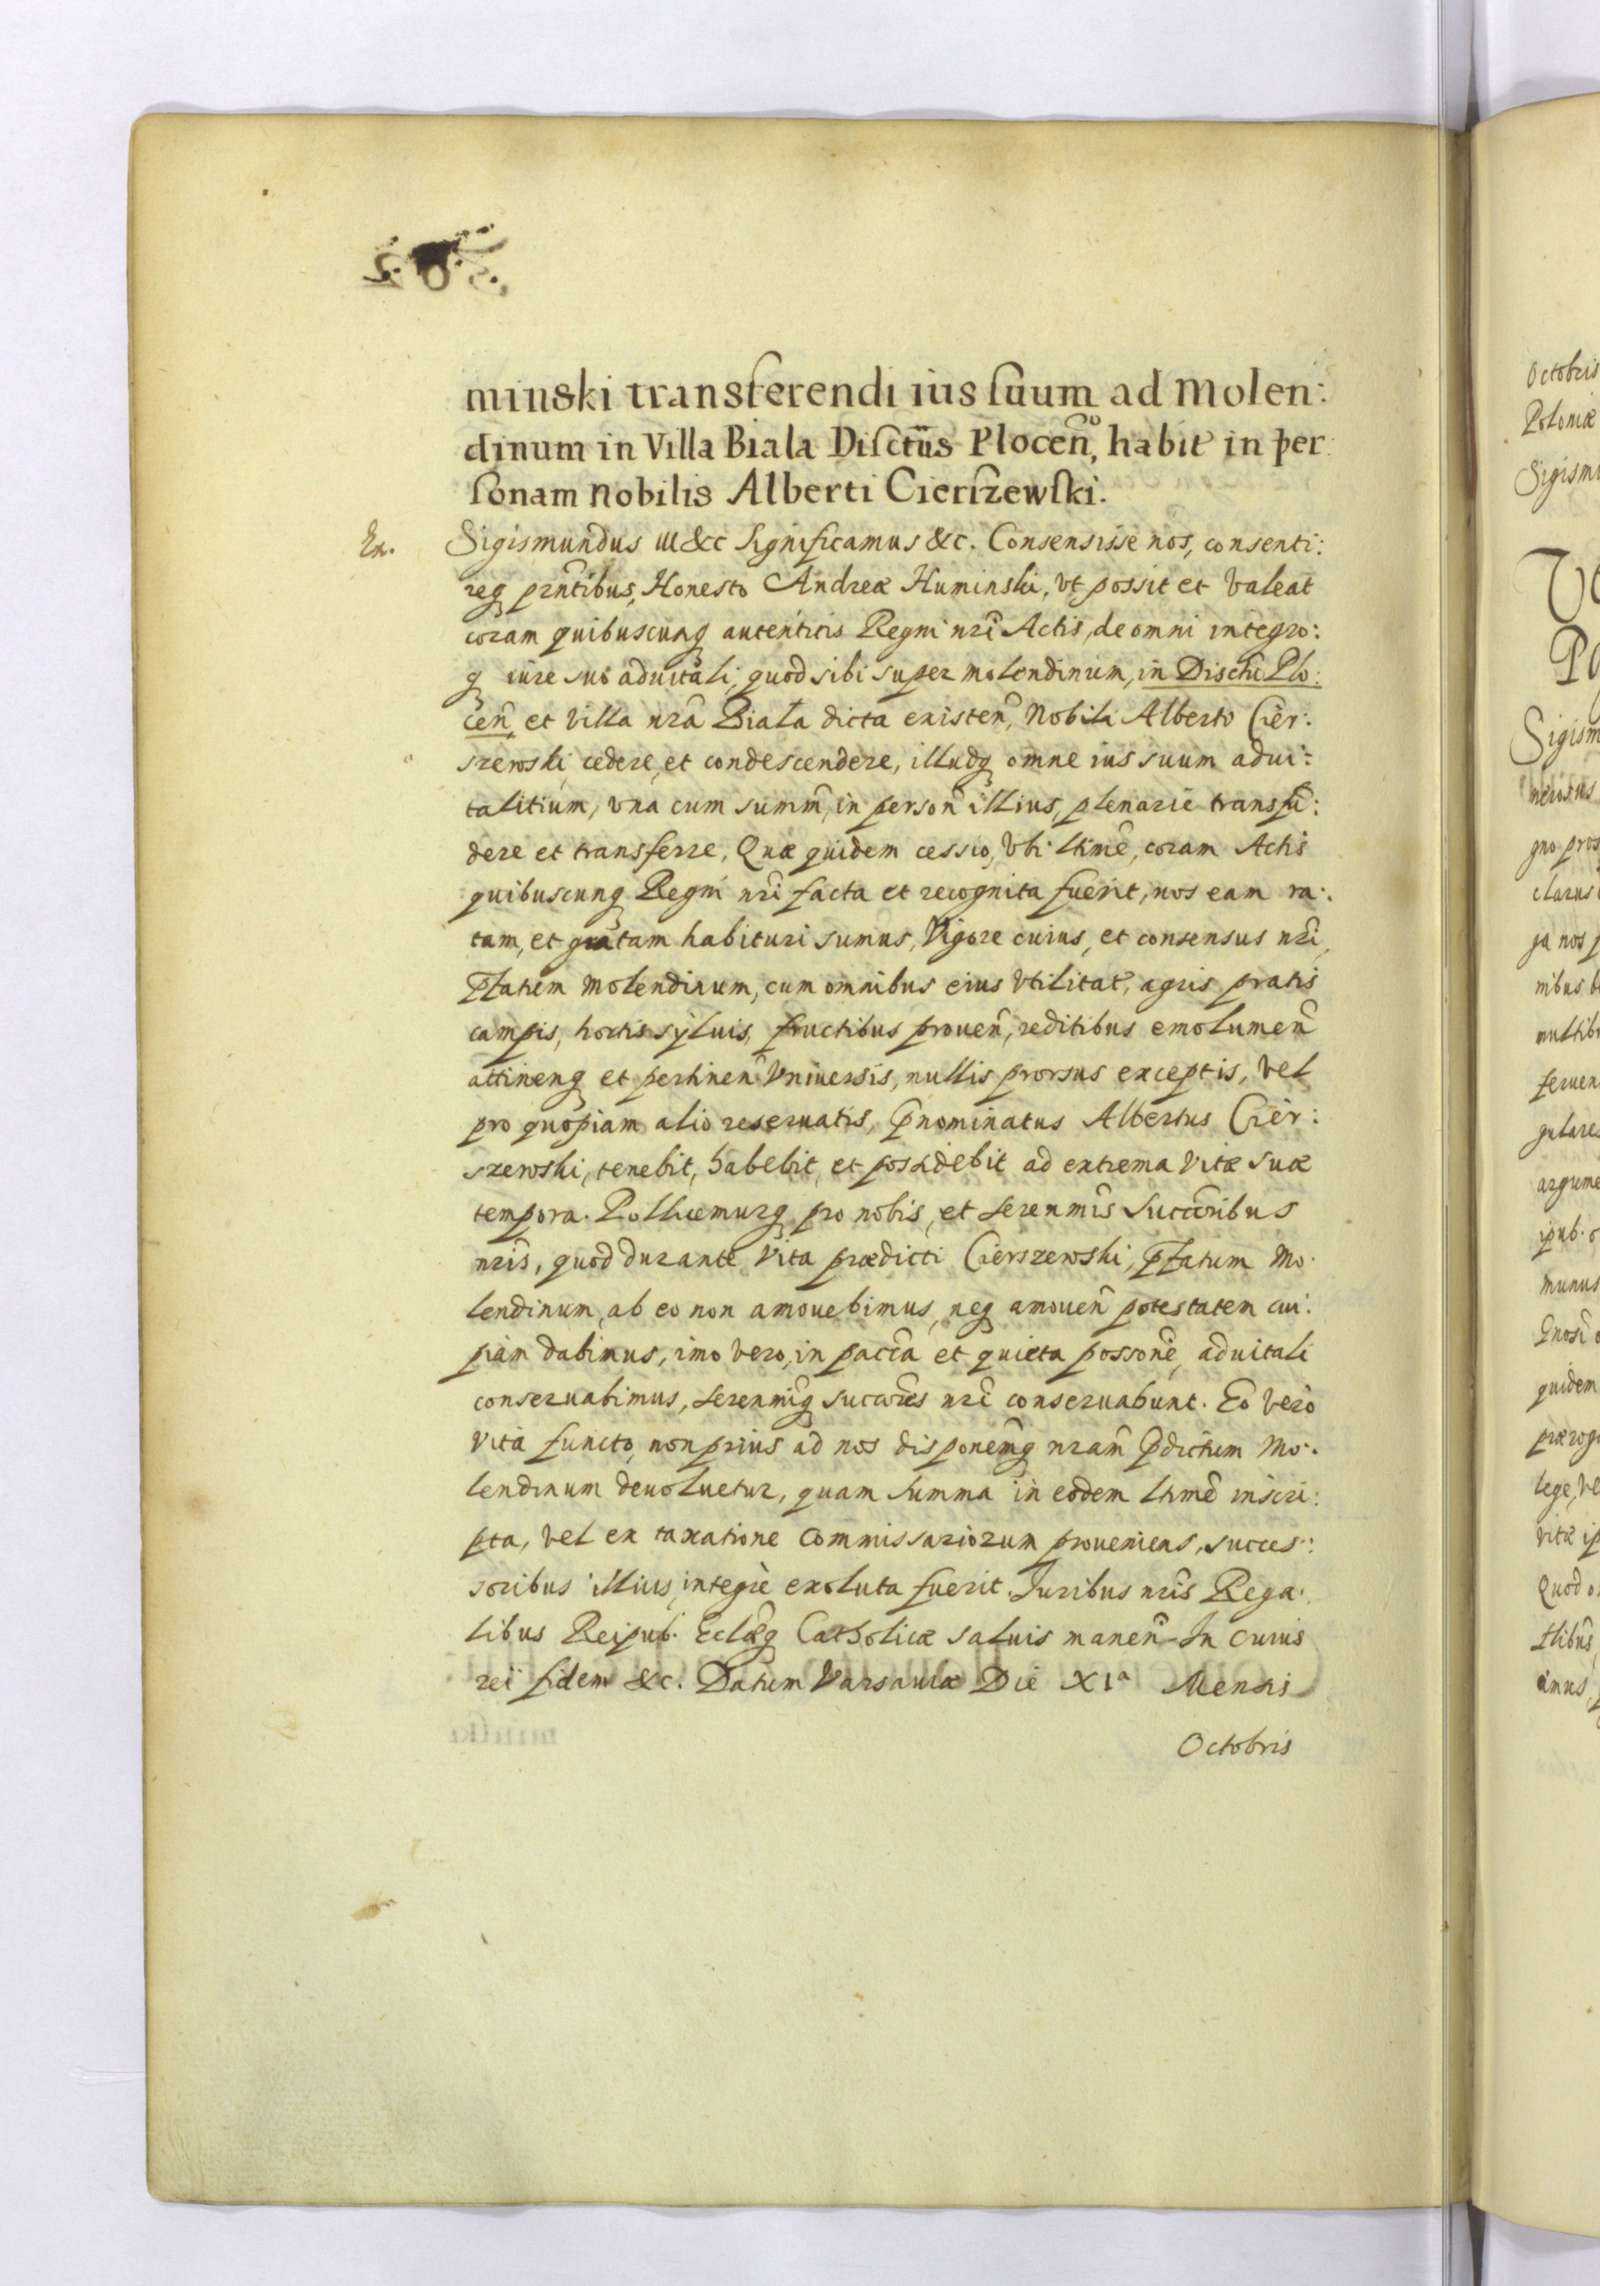 minski transferendi ius suum ad Molen:
dinum in Villa Biala Disctus Plocen, habit in per
sonam Nobilis Alberti Cierszewski.
Ex. Sigismundus III &c Significamus &c. Consensisse nos, consenti:
req prntibus, Honesto Andreæ Huminski, vt possit et valeat
coram quibuscunq autenticis Regni nri Actis, de omni integro:
q iure suo aduitali, quod sibi super molendinum, in Dischu Plo:
cen, et villa nra Biała dicta existen, Nobili Alberto Cier:
szewski, cedere, et condescendere, illudq omne ius suum adui:
talitium, vna cum summ, in person illius, plenarie transfu:
dere et transferre, Quæ quidem cessio, vbi ltime, coram Actis
quibuscunq Regni nri facta et recognita fuerit, nos eam ra:
tam, et gratam habituri sumus, Vigore cuius, et consensus nri,
Pfatum Molendinum, cum omnibus eius vtilitat, agris pratis
campis, hortis syluis, fructibus prouen, reditibus emolumen
attinenq et pertinen Vniuersis, nullis prorsus exceptis, vel
pro quopiam alio reseruatis, Pnominatus Albertus Cier:
szewski, tenebit, habebit, et possidebit ad extrema vitæ suæ
tempora. Pollicemurq pro nobis, et Serenmis Succoribus
nris, quod durante vita prædicti Cierszewski, Pfatum Mo:
lendinum, ab eo non amouebimus, neq amouen potestatem cui:
piam dabimus, imo vero, in pacca et quieta possone, aduitali
conseruabimus, Serenmiq succores nri conseruabunt. Eo vero
vita functo, non prius ad nos disponemq nram Pdictum Mo:
lendinum deuoluetur, quam Summa in eodem ltime inscri:
pta, vel ex taxatione Commissariorum proueniens, succes:
soribus illius, integre exoluta fuerit. Iuribus nris Rega:
libus Reipub. Eclæq Catholicæ saluis manen. In cuius
rei fidem &c. Datum Varsauiæ Die XIa Mensis
Octobris